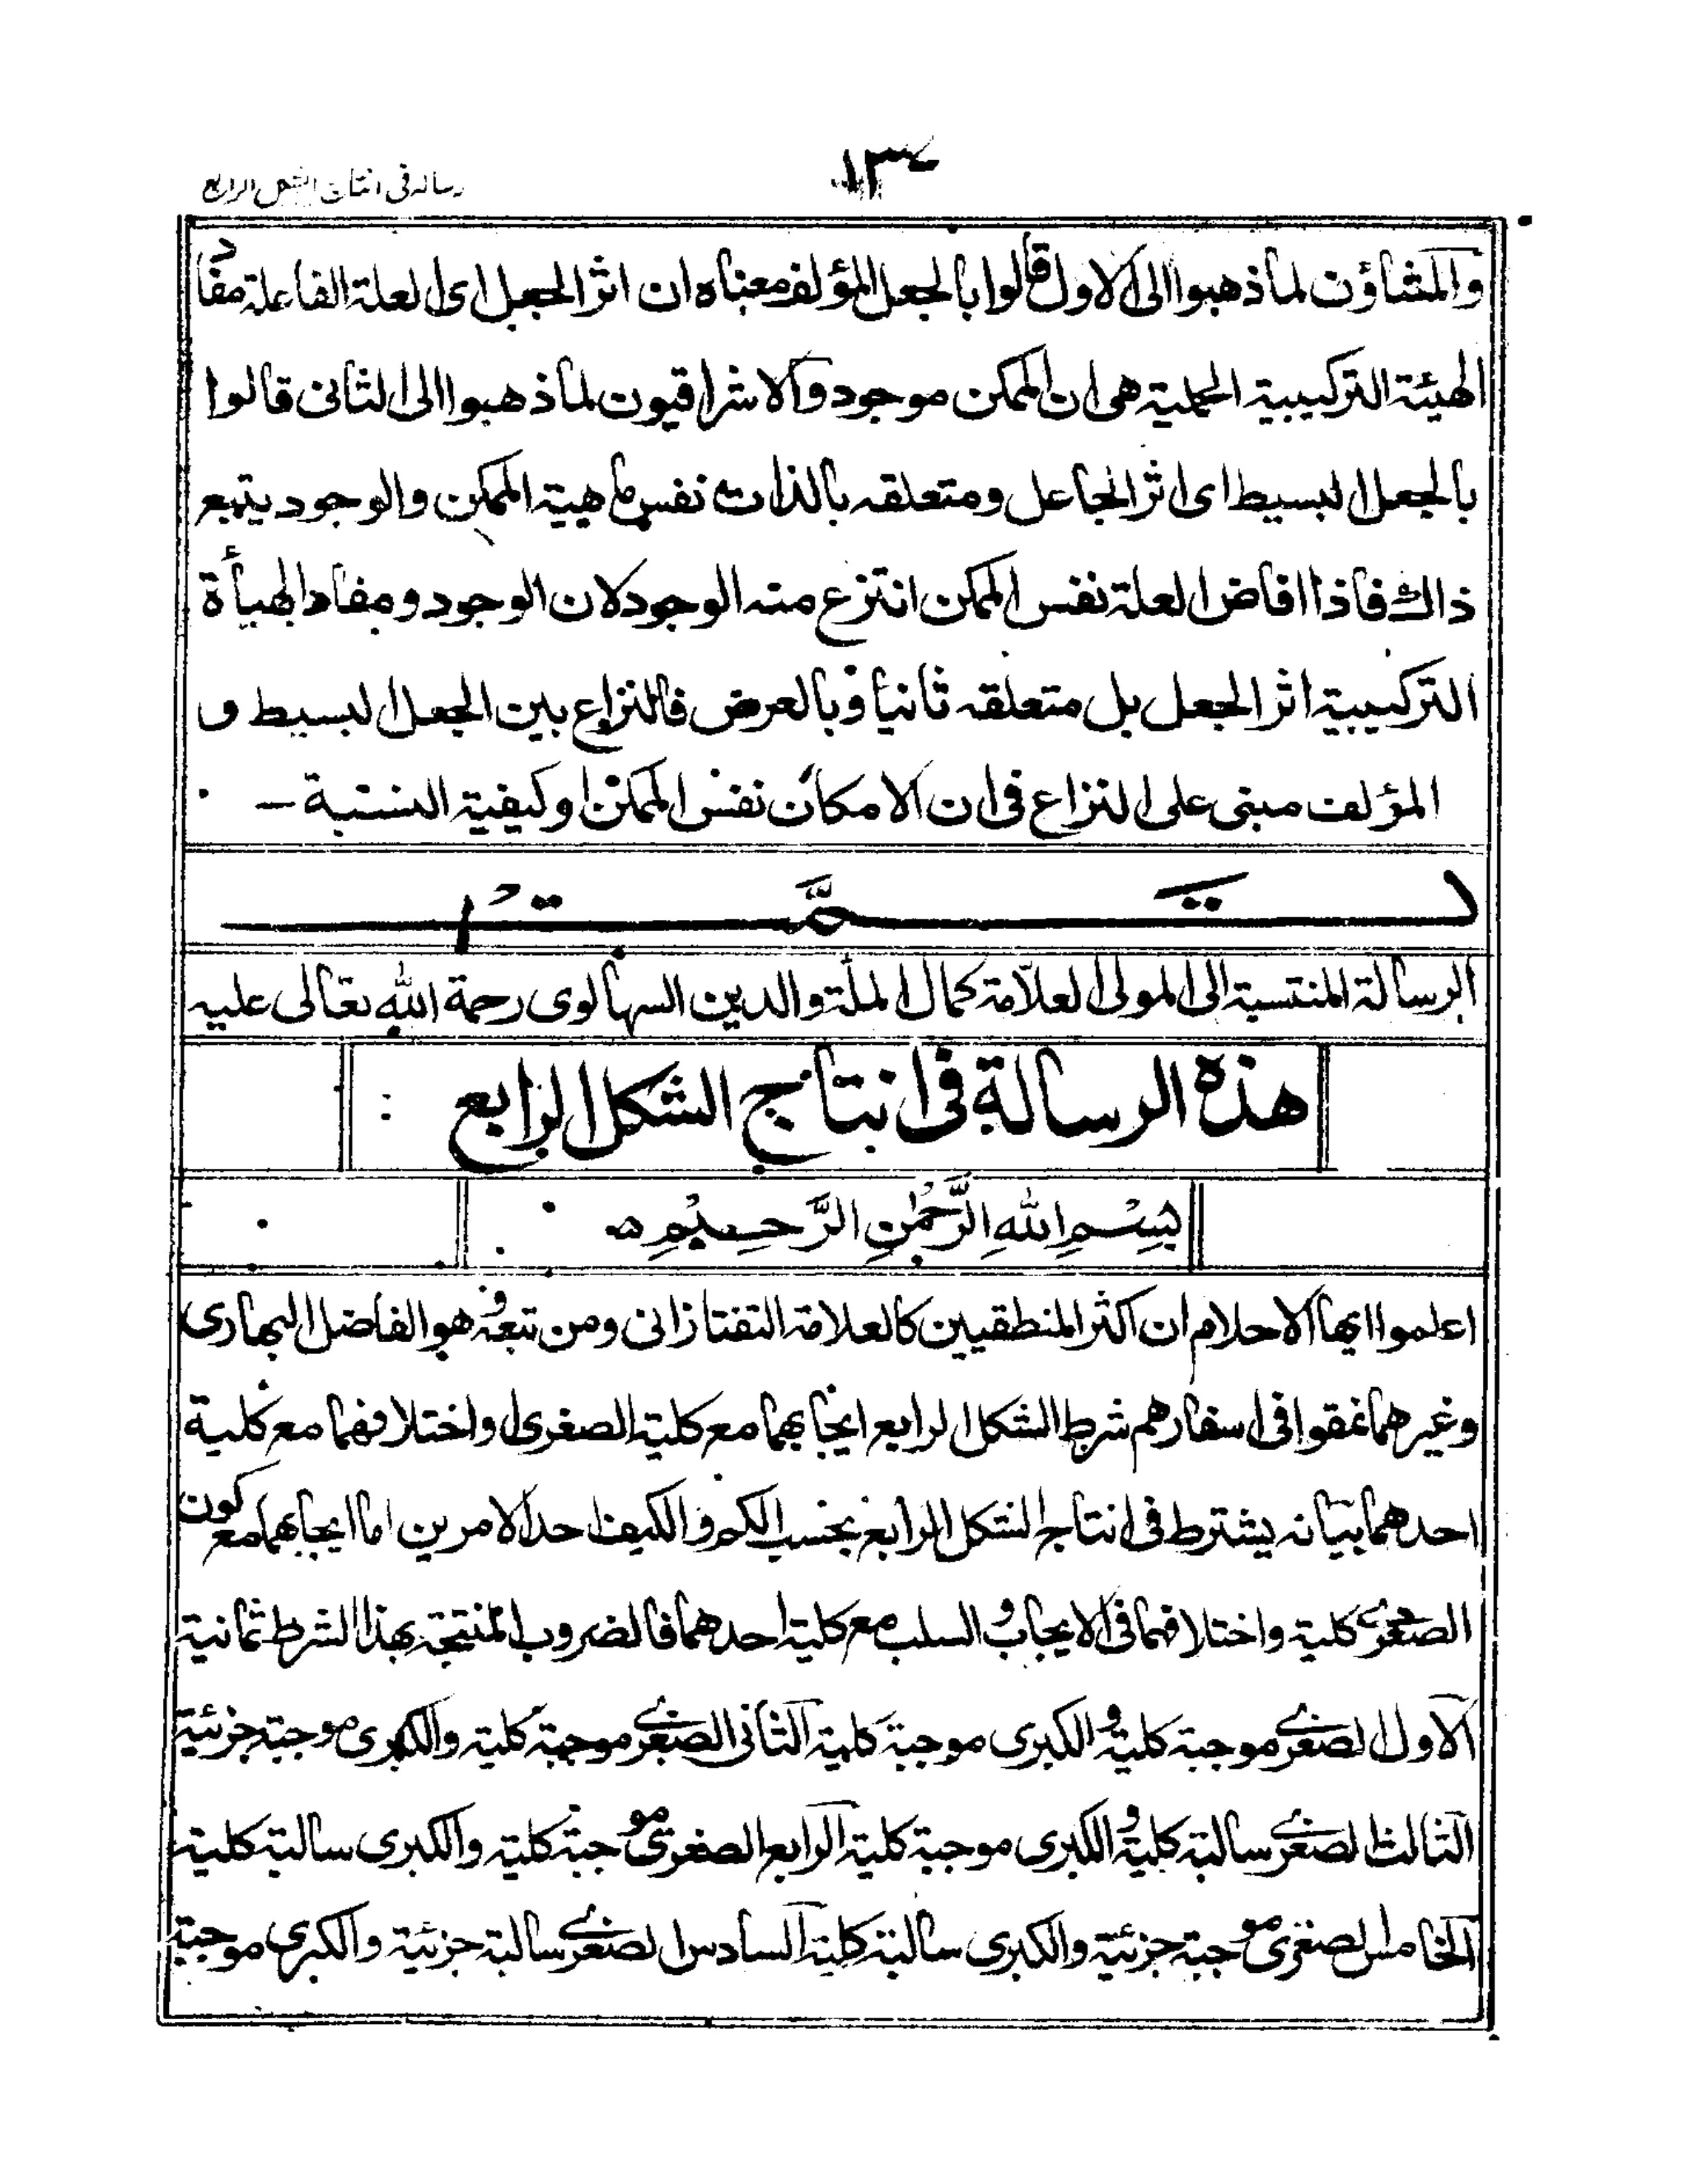 رساله فی انتاج الشکل الرابع
١٣
والمشاؤن لما ذهبوا الى الاول قالوا بالجعل المؤلف معناه ان اثر الجعل اى العلة الفاعلة مفاد
الهيئة التركيبية الحملية هى ان الممكن موجود والاشراقيون لما ذهبوا الى الثانى قالوا
بالجعل البسيط اى اثر الجاعل ومتعلقه بالذات نفس ماهية الممكن والوجود يتبع
ذالك فاذا افاض العلة نفس الممكن انتزع منه الوجود لان الوجود ومفاد الهيأة
التركيبية اثر الجعل بل متعلقه ثانيا وبالعرض فالنزاع بين الجعل البسيط و
المؤلف مبنى على النزاع فى ان الامكان نفس الممكن او كيفية النسبة –
تمت
الرسالة المنتسبة الى المولى العلامة كمال الملة والدين السهالوى رحمة الله تعالى عليه
هذه الرسالة فى انتاج الشكل الرابع :
بِسْمِ اللهِ الرَّحْمٰنِ الرَّحِيْمِ ه
اعلموا ايها الاحلام ان اكثر المنطقيين كالعلامة التفتازانى ومن تبعه وهو الفاضل البهارى
وغيرهما نمقوا فى اسفارهم شرط الشكل الرابع ايجابهما مع كلية الصغرى او اختلافهما مع كلية
احدهما بيانه يشترط فى انتاج الشكل الرابع بحسب الكم والكيف احد الامرين اما ايجابهما مع كون
الصغرى كلية واختلافهما فى الايجاب والسلب مع كلية احدهما فالضروب المنتجة بهذا الشرط ثمانية
الاول الصغرى موجبة كلية والكبرى موجبة كلية الثانى الصغرى موجبة كلية والكبرى موجبة جزئية
الثالث الصغرى سالبة كلية والكبرى موجبة كلية الرابع الصغرى موجبة كلية والكبرى سالبة كلية
الخامس الصغرى موجبة جزئية والكبرى سالبة كلية السادس الصغرى سالبة جزئية والكبرى موجبة